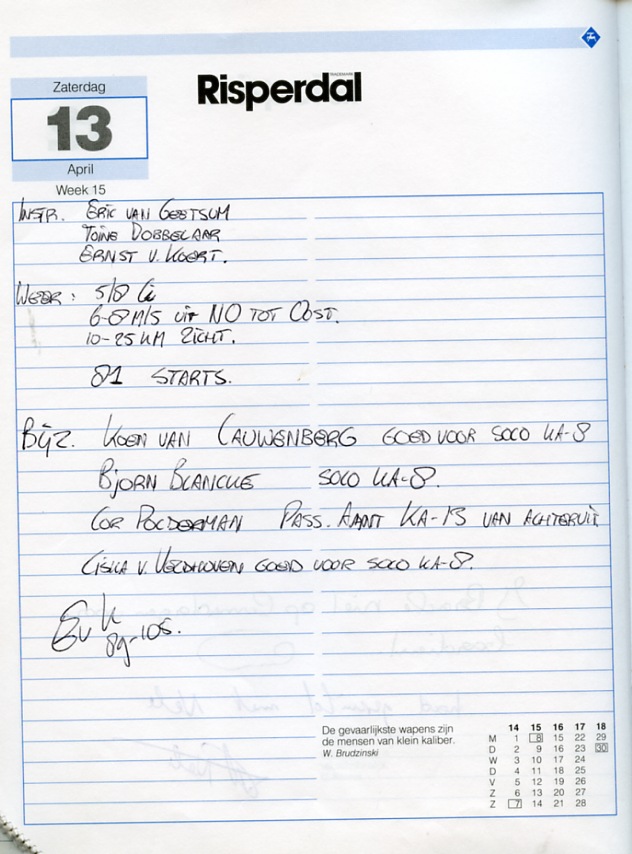 Risperdal
Zaterdag
13
April
Week 15
INSTR. ERIC VAN GEETSUM
TOINE DOBBELAAR
ERNST V. KOERT.
WEER: 5/8 Ci
6-8 M/S UIT NO TOT OOST.
10-25 KM ZICHT.
81 STARTS.
BIJZ. KOEN VAN CAUWENBERG GOED VOOR SOLO KA-8
BJORN BLANCKE SOLO KA-8.
COR POLDERMAN PASS. AANT KA-13 VAN ACHTERUIT
CISKA V. VELDHOVEN GOED VOOR SOLO KA-8.
EvK
89-105.
De gevaarlijkste wapens zijn
de mensen van klein kaliber.
W. Brudzinski
14 15 16 17 18
M 1 8 15 22 29
D 2 9 16 23 30
W 3 10 17 24
D 4 11 18 25
V 5 12 19 26
Z 6 13 20 27
Z 7 14 21 28